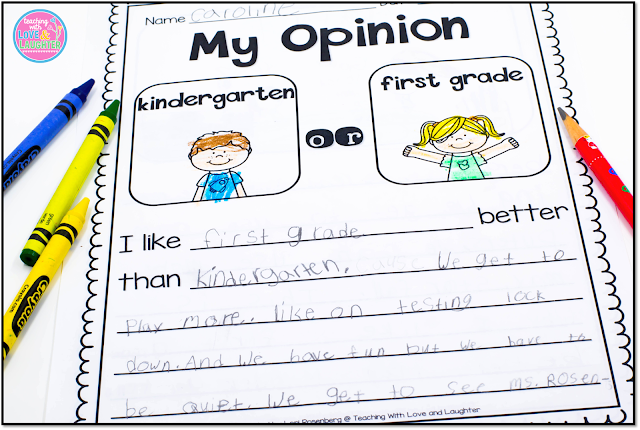 teaching with
LOVE &
LAUGHTER
Name Caroline
My Opinion
kindergarten
or
first grade
I like first grade better
than kindergarten. We get to
play more. like on testing lock
down. And We have fun but we have to
be quiet. We get to see ms. Rosen-
Rosenberg @ Teaching With Love and Laughter
Crayola
Crayola